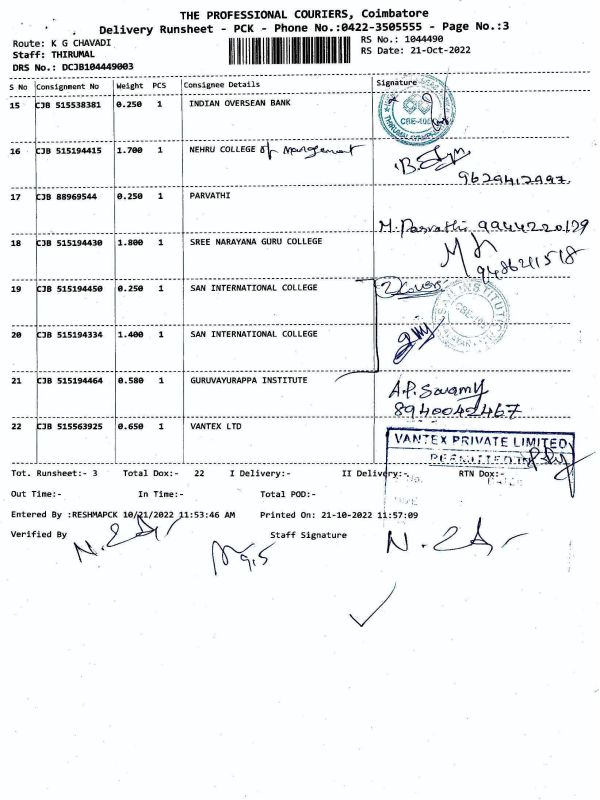 THE PROFESSIONAL COURIERS, Coimbatore
Delivery Runsheet - PCK - Phone No.:0422-3505555 - Page No.:3
Route: K G CHAVADI
RS No.: 1044490
Staff: THIRUMAL
RS Date: 21-Oct-2022
DRS No.: DCJB104449003
S No Consignment No Weight PCS Consignee Details Signature
15 CJB 515538381 0.250 1 INDIAN OVERSEAN BANK
16 CJB 515194415 1.700 1 NEHRU COLLEGE of Management
17 CJB 88969544 0.250 1 PARVATHI
M. Parvathi 9944220179
18 CJB 515194430 1.800 1 SREE NARAYANA GURU COLLEGE
19 CJB 515194450 0.250 1 SAN INTERNATIONAL COLLEGE 2 Covers
20 CJB 515194334 1.400 1 SAN INTERNATIONAL COLLEGE
21 CJB 515194464 0.580 1 GURUVAYURAPPA INSTITUTE A.P. Swamy
8940042467
22 CJB 515563925 0.650 1 VANTEX LTD
VANTEX PRIVATE LIMITED
Tot. Runsheet:- 3 Total Dox:- 22 I Delivery:- II Delivery:- RTN Dox:-
Out Time:- In Time:- Total POD:-
Entered By :RESHMAPCK 10/21/2022 11:53:46 AM Printed On: 21-10-2022 11:57:09
Verified By Staff Signature